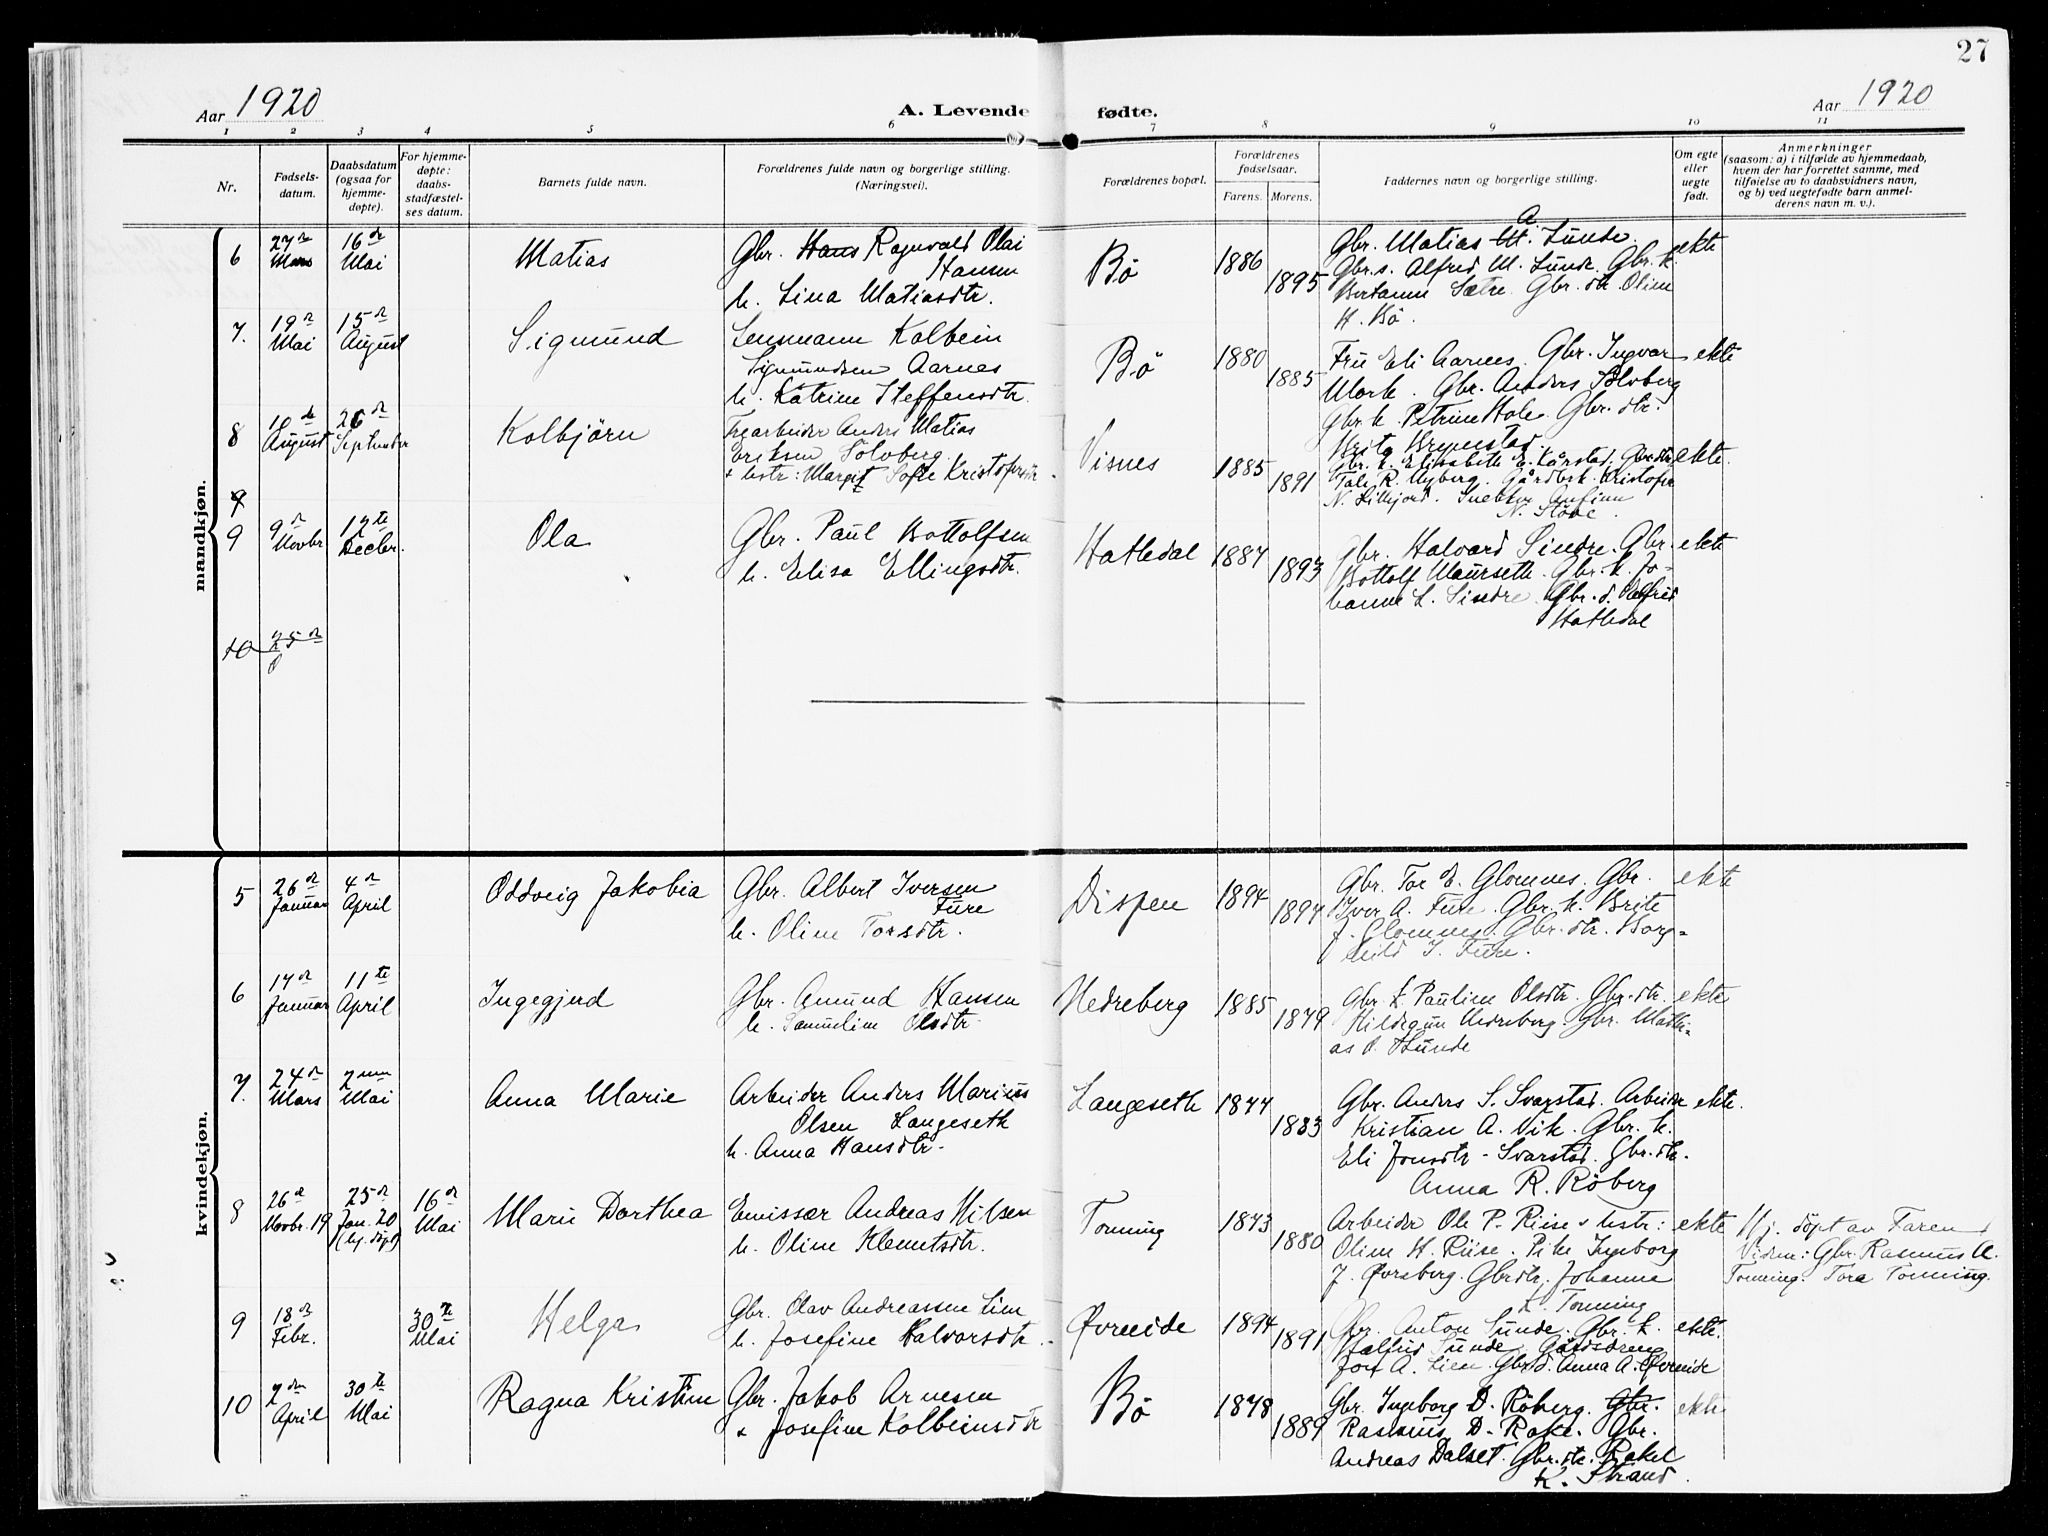 27
Aar 1920
A. Levende fødte.
Aar 1920
1 2 3 4 5 6 7 8 9 10 11
Nr.
Fødsels-
datum.
Daabsdatum
(ogsaa for
hjemme-
døpte).
For hjemme-
døpte:
daabs-
stadfæstel-
ses datum.
Barnets fulde navn.
Forældrenes fulde navn og borgerlige stilling.
(Næringsvei).
Forældrenes bopæl.
Forældrenes
fødselsaar.
Farens. Morens.
Faddernes navn og borgerlige stilling.
Om egte
eller
uegte
født.
Anmerkninger
(saasom: a) i tilfælde av hjemmedaab,
hvem der har forrettet samme, med
tilføielse av to daabsvidners navn,
og b) ved uegtefødte barn anmel-
derens navn m. v.).
mandkjøn.
6
27de
Mars
16de
Mai
Matias
Gbr. Hans Ragnvald Olai
Hansen
h. Lina Matiasdtr.
Bö
1886
1895
A
Gbr. Matias M. Sunde.
Gbr.s. Alfred M. Sunde. Gbr. k.
Sætre. Gbr. dtr. Oline
H. Bö.
ekte
7.
19de
Mai
15de
August
Sigmund
Lensmann Kolbein
Sigmundsen Aarnes
h. Katrine Steffensdtr.
Bö
1880
1885
Fru Eli Aarnes. Gbr. Ingvar
Mork. Gbr. Anders Solvberg
Gbr. k. Petrine Hole. Gbr. dtr.
Brita
ekte
8
10de
August
26de
September
Kolbjörn
Trearbeider Anders Matias
Eriksen Solvberg.
+ hstr: Margit Sofie Kristofersdtr.
Visnes
1885
1891
Gbr. k. Elisabeth E. Kårstad. Gbrdtr.
Tale R. Myberg. Gårdbsk. Kristofer
N. Lillejord. Snekker Anfinn
N. Støve.
ekte.
9
9
9de
Novbr.
12te
Decbr.
Ola
Gbr. Paul Bottolfsen
h. Elisa Ellingsdtr.
Hatledal
1887
1893
Gbr. Halvard Sindre. Gbr.
Bottolf Maurseth. Gbr. k. Jo-
hanne L. Sindre. Gbr. d.
Hatledal
ekte
10
25de
O
kvindekjøn.
5
26de
Januar
4de
April
Oddveig Jakobia
Gbr. Albert Iversen
Fure
h. Oline Torsdtr.
Dispen
1894
1897
Gbr. Tor E. Glomnes. Gbr.
Iver A. Fure. Gbr. k. Brite
J. Glomnes. Gbr. dtr. Borg-
hild I. Fure.
ekte
6
17de
Januar
11te
April
Ingegjerd
Gbr. Amund Hansen
h. Samueline Olsdtr.
Nedreberg
1885
1879
Gbr. k. Pauline Olsdtr. Gbr. dtr.
Hildegun Nedreberg. Gbr. Matti-
as O. Sunde
ekte
7.
24de
Mars
2nen
Mai
Anna Marie
Arbeider Anders Marius
Olsen Langeseth
h. Anna Hansdtr.
Langeseth
1877
1883
Gbr. Anders S. Svarstad. Arbeider
Kristian A. Vik. Gbr. k.
Eli Jonsdtr. Svarstad. Gbr. dtr.
Anna R. Röberg
ekte.
8
26de
Novbr. 19
25de
Jan. 20
(hj. döpt)
16de
Mai
Marie Dorthea
Emissær Andreas Nilsen
h. Oline Klemetsdtr.
Tonning
1873
1880
Arbeider Ole P. Riise + hstr:
Oline H. Riise. Pike Ingeborg
J. Øvreberg. Gbrdtr. Johanne
L. Tonning
ekte
Hj. döpt av Faren
Vidne: Gbr. Rasmus A.
Tonning. Tora Tonning.
9
18de
Febr.
30te
Mai
Helga
Gbr. Olav Andreassen Lien
h. Josefine Halvorsdtr.
Øvreeide
1894
1891
Gbr. Anton Sunde. Gbr. k.
Sunde. Gårdsdreng
Jon A. Lien. Gbr. d. Anna A. Øvreeide
ekte.
10
2den
April
30te
Mai
Ragna Kristine
Gbr. Jakob Arnesen
+ Josefine Kolbeinsdtr
Bö
1878
1889
Gbr. Ingeborg D. Röberg. Gbr.
Rasmus D. Rake. Gbr.
Andreas Dalset. Gbr. dtr. Rakel
K. Strand.
ekte